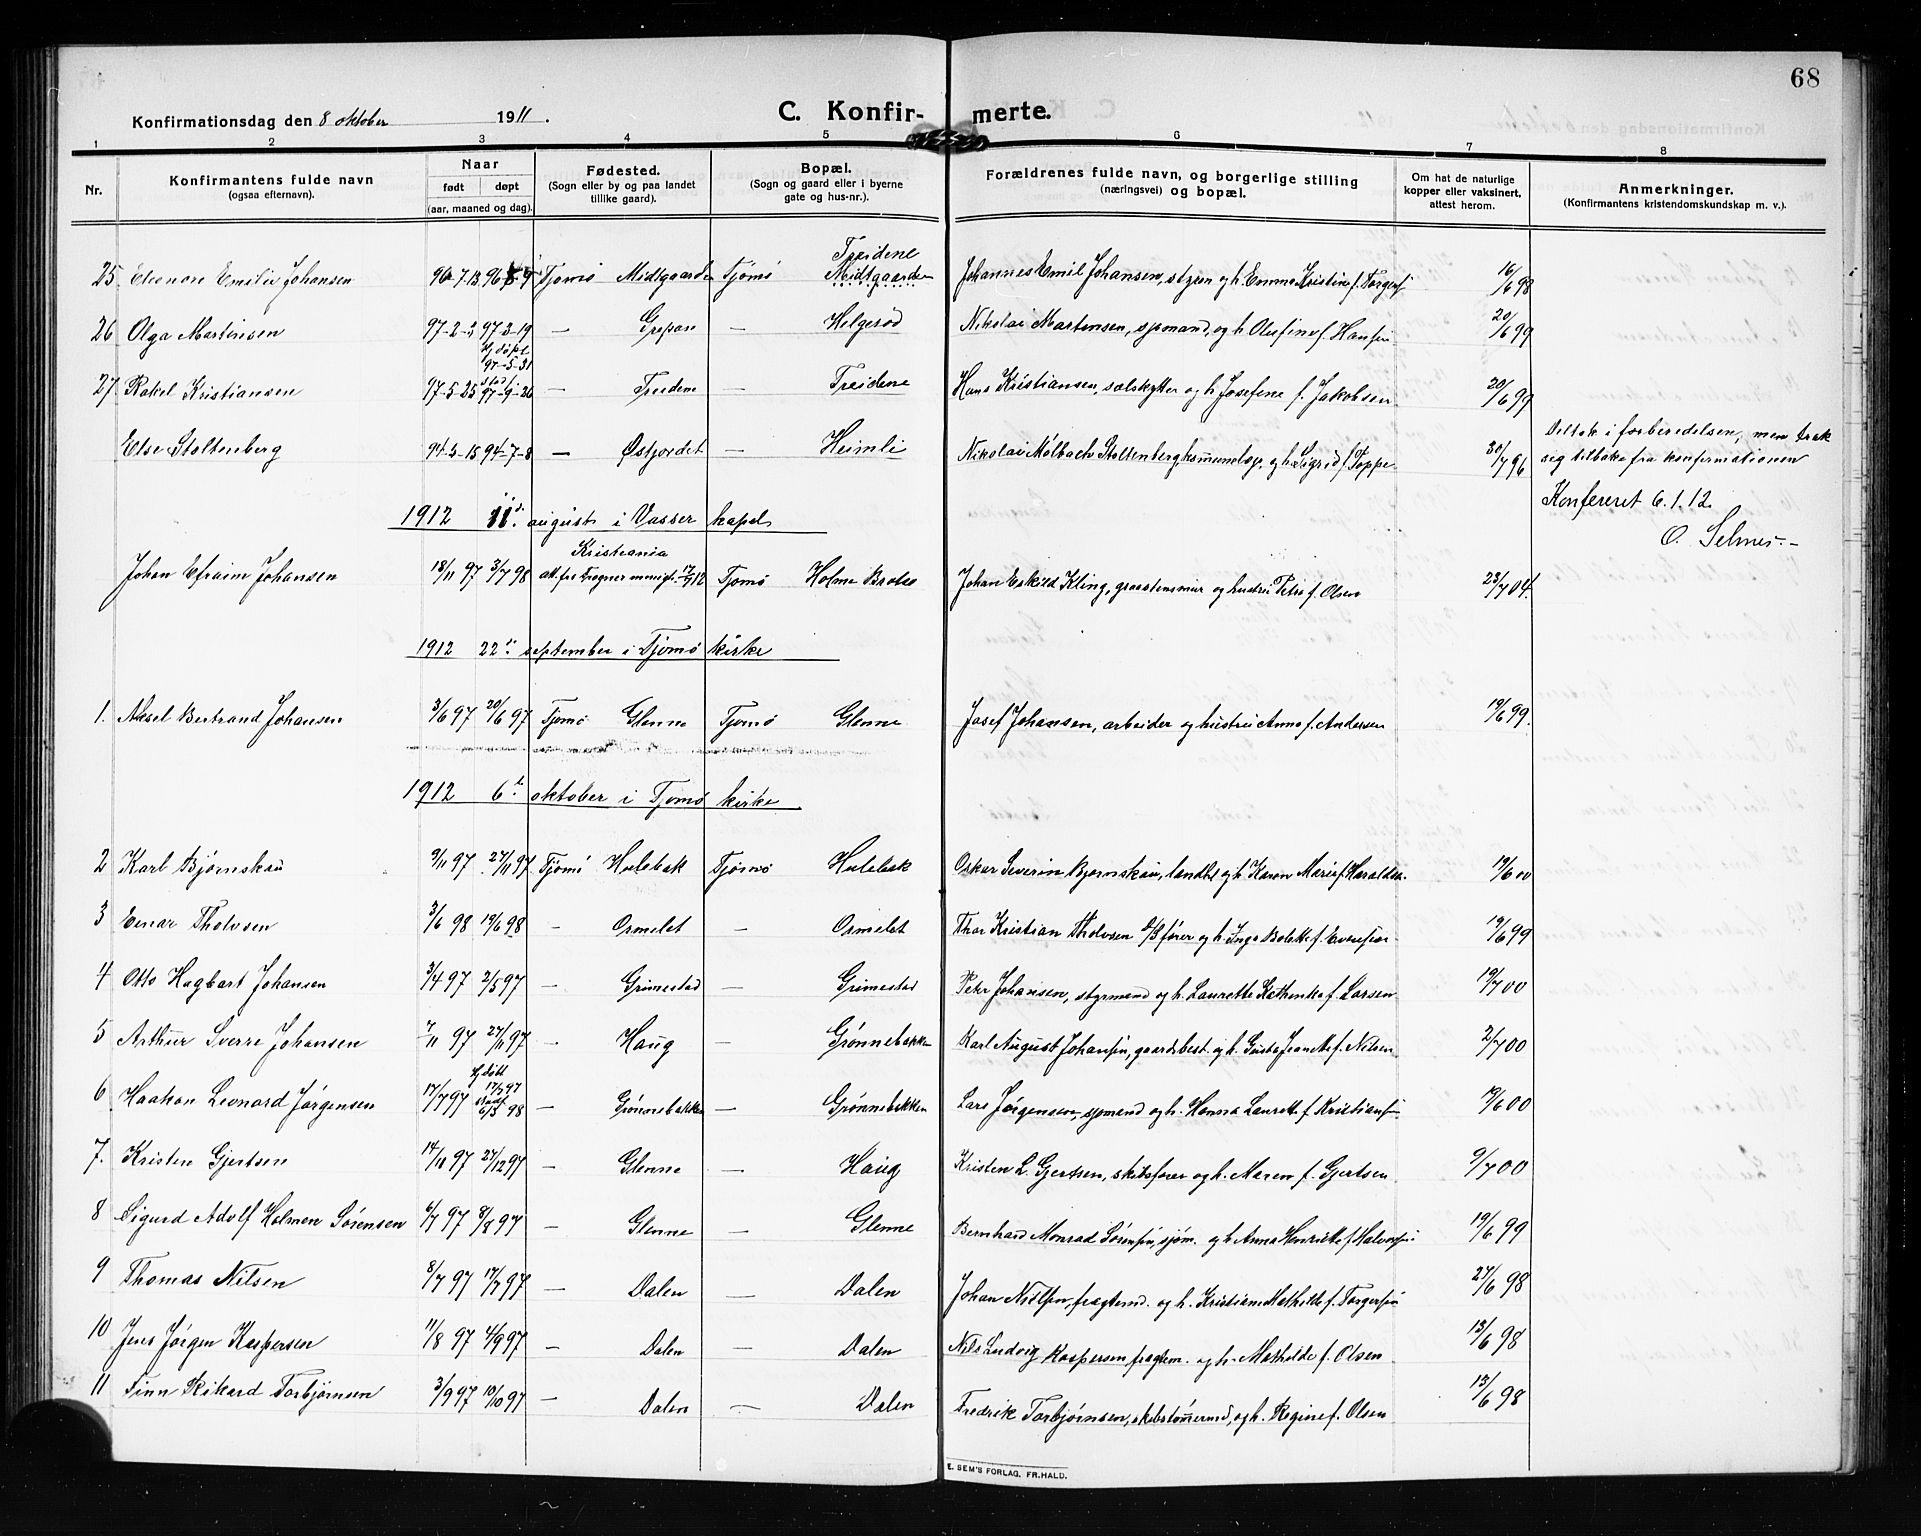 68
Konfirmationsdag den 8 oktober 1911.
C. Konfir- merte.
1 2 3 4 5 6 7 8
Nr.
Konfirmantens fulde navn
(ogsaa efternavn).
Naar
født døpt
(aar, maaned og dag).
Fødested.
(Sogn eller by og paa landet
tillike gaard).
Bopæl.
(Sogn og gaard eller i byerne
gate og hus-nr.).
Forældrenes fulde navn, og borgerlige stilling
(næringsvei) og bopæl.
Om hat de naturlige
kopper eller vaksinert,
attest herom.
Anmerkninger.
(Konfirmantens kristendomskundskap m. v.).
Treidene
25 Eleonore Emilie Johansen 96-7-13 96 9 Tjømø Midtgaarden Tjømø Midtgaarden Johannes Emil Johansen, styrm og h. Emma Kristine f. Torgersen 16/6 98
26 Olga Martinsen 97-2-3 97-3-19 — Grepan — Helgerød Nikolai Martensen, sjømand, og h. Olufine f. Hansen 20/6 99
Hj. døpt
97-5-31
27 Rakel Kristiansen 97-5-25 stadf. 97-9-26 — Treidene — Treidene Hans Kristiansen, sælskytter og h. Josefine f. Jakobsen 20/6 99
Else Stoltenberg 94-5-15 94-7-8 — Østjordet — Heimli Nikolai Molbach Stoltenberg, og h. Sigrid f. Poppe 30/7 96
Deltok i forberedelsen, men trak
sig tilbake fra konfirmationen
Konfereret 6.1.12.
O. Selmer.-
1912 11te august i Vasser kapel
Kristiania
Johan Efraim Johansen 18/11 97 3/7 98 att. fra Frogner menigh. 17/7 12 Tjømø Holme Brotsø Johan Eskild Kling, graastensmur og hustru Petra f. Olsen 23/7 04.
1912 22de september i Tjømø kirke
1. Aksel Bertrand Johansen 3/6 97 20/6 97 Tjømø Glenne Tjømø Glenne Josef Johansen, arbeider og hustru Anna f. Andersen 19/6 99.
1912 6te oktober i Tjømø kirke
2 Karl Bjørnskau 9/11 97 27/11 97 Tjømø Hulebak Tjømø Hulebak Oskar Severin Bjørnskau, landh og h Karen Marie f. Haraldsen 19/6 00
3 Einar Tholvsen 3/6 98 19/6 98 — Ormelet — Ormelet Thor Kristian Tholvsen fører og h. Inga Bolette f. Evensen 19/6 99
4 Otto Hagbart Johansen 3/4 97 2/5 97 — Grimestad — Grimestad Peter Johansen, styrmand og h. Laurette Kathinka f. Larsen 19/7 00
5 Arthur Sverre Johansen 7/11 97 27/11 97 — Haug — Grønnebakken Karl August Johansen, gaardbest. og h. Gusta Jeanette f. Nilsen 2/7 00
Hj. døbt
17/7 97
6 Haakon Leonard Jørgensen 17/7 97 stadf 6/3 98 — Grønnebakken — Grønnebakken Lars Jørgensen, sjømand og h. Hanna Laurette f. Kristiansen 19/6 00
7. Kristen Gjertsen 14/11 97 27/12 97 — Glenne — Haug Kristen L. Gjertsen, skibsfører og h. Maren f. Gjertsen 9/7 00
8 Sigurd Adolf Holmen Sørensen 6/7 97 8/8 97 — Glenne — Glenne Bernhard Monrad Sørensen, sjøm. og h. Anna Henriette f. Halvorsen 19/6 99
9 Thomas Nilsen 8/7 97 17/7 97 — Dalen — Dalen Johan Nilsen, fragtemd. og h. Kristiane Mathilde f. Torgersen 27/6 98
10 Jens Jørgen Kaspersen 11/8 97 4/9 97 — Dalen — Dalen Nils Ludvig Kaspersen fragtem. og h. Mathilde f. Olsen 13/6 98
11 Finn Rikard Torbjørnsen 3/9 97 10/10 97 — Dalen — Dalen Fredrik Torbjørnsen, skibstømmermd, og h. Regine f. Olsen 13/6 98
E. SEM'S FORLAG, FR.HALD.